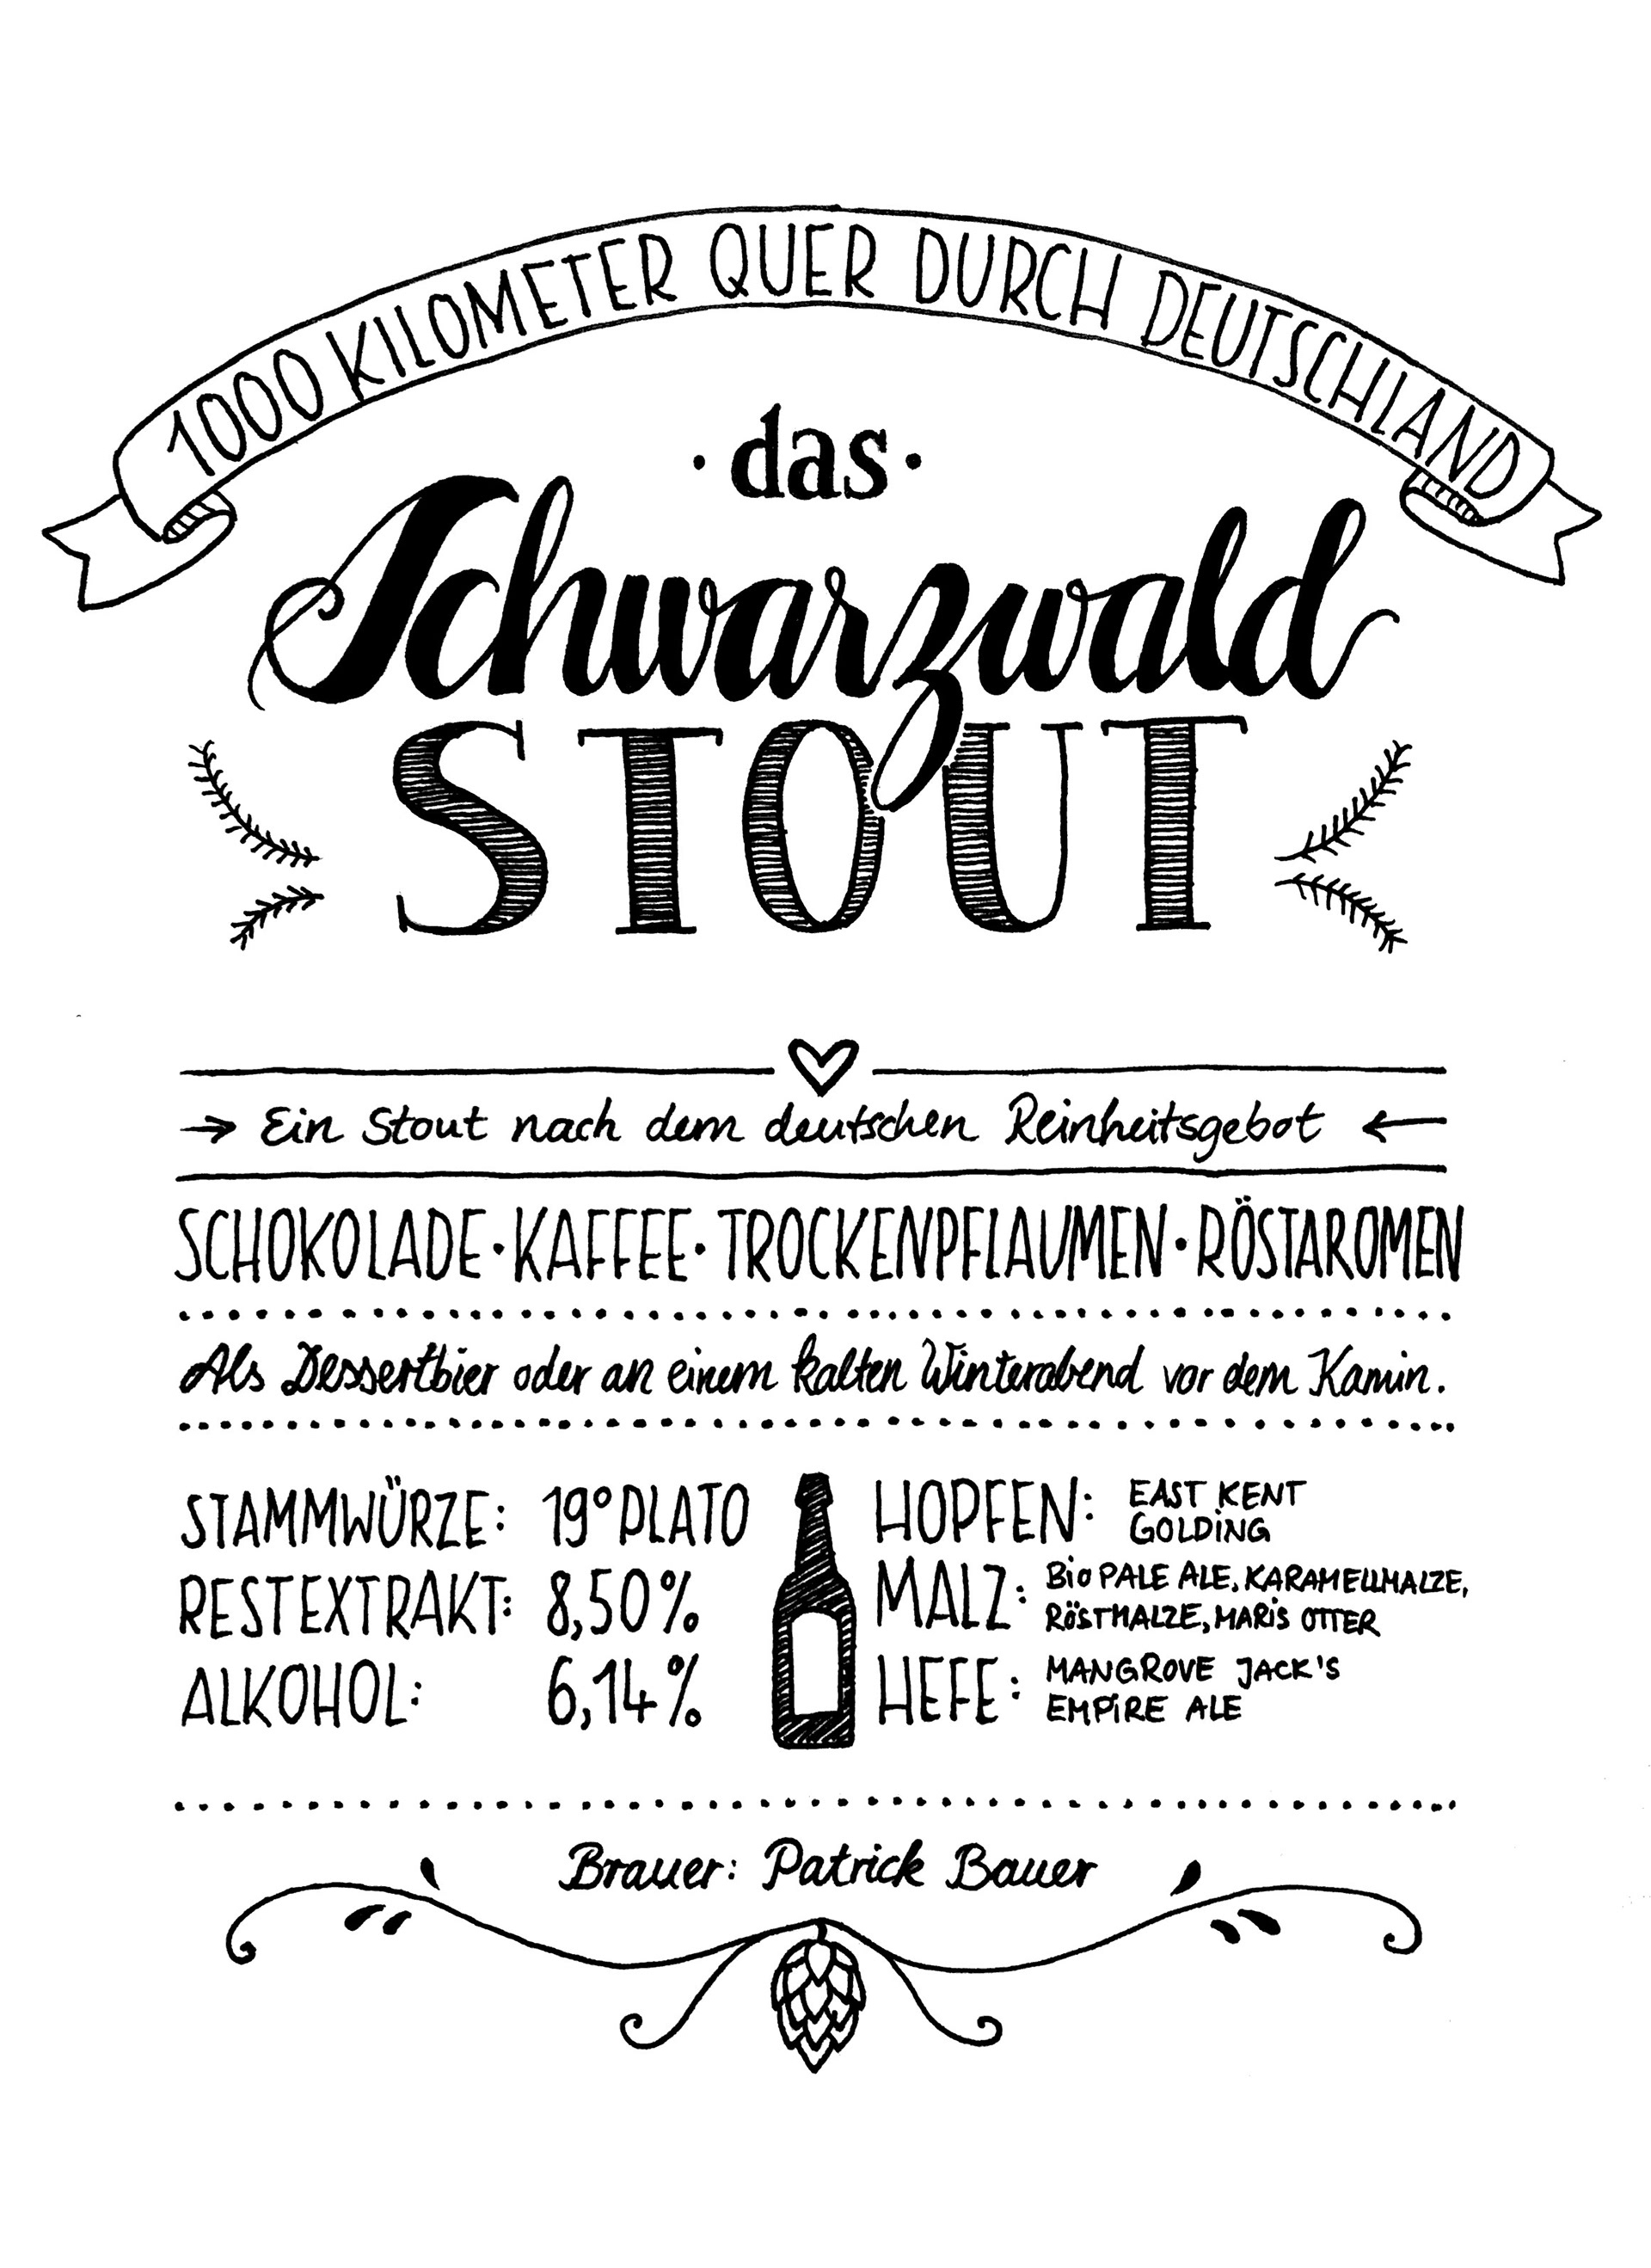 1000 KILOMETER QUER DURCH DEUTSCHLAND
· das ·
Schwarzwald
STOUT
→ Ein Stout nach dem deutschen Reinheitsgebot ←
SCHOKOLADE · KAFFEE · TROCKENPFLAUMEN · RÖSTAROMEN
Als Dessertbier oder an einem kalten Winterabend vor dem Kamin.
STAMMWÜRZE: 19° PLATO
RESTEXTRAKT: 8,50%
ALKOHOL: 6,14%
HOPFEN: EAST KENT
GOLDING
MALZ: BIO PALE ALE, KARAMELLMALZE,
RÖSTMALZE, MARIS OTTER
HEFE: MANGROVE JACK'S
EMPIRE ALE
Brauer: Patrick Bauer